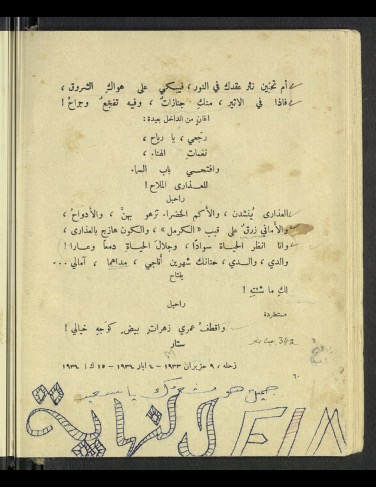 أم تحنين نثر عقدك في النور، فيبكي على هواك الشروق،
فاذا في الاثير، منك جنازات، وفيه تفجع وجراح!
اغان من الداخل بعيدة:
رجّعي، يا رياح،
نغمات الهناء،
وافتحي باب السماء
للعذارى الملاح!
راحيل
العذارى يُنشدن، والأكم الخضراء تزهو بهنّ، والأدواح،
والأماني زرقٌ على قبب «الكرمل»، والكون هازج بالعذارى،
وانا انظر الحياة سواداً، وجلال الحياة دمعاً وعارا!
والدي، والدي، حنانك شهرين أناجي، مداهما، آمالي ...
يفتاح
لك ما شئتِ!
راحيل
مستطردة
واقطف عمري زهرات بيض كرجو خيالي!
ستار
342
زحله، ٩ حزيران ١٩٣٣ - ٤ ايار ١٩٣٤ - ١٥ ك١ ١٩٣٤
٦٠
جميل هو يا سعيد
النهاية
FIN